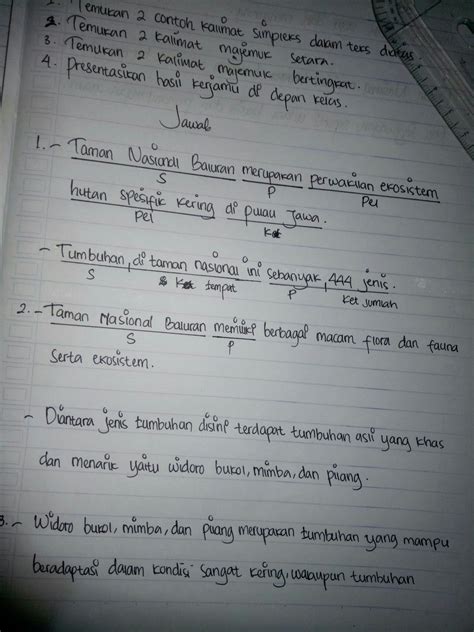 1. Temukan 2 contoh kalimat simpleks dalam teks diatas.
2. Temukan 2 kalimat majemuk setara.
3. Temukan 2 kalimat majemuk bertingkat.
4. Presentasikan hasil kerjamu di depan kelas.
Jawab
1. - Taman Nasional Baluran merupakan perwakilan ekosistem
S P Pel
hutan spesifik kering di pulau Jawa.
Pel Ket
- Tumbuhan, di taman nasional ini sebanyak, 444 jenis.
S Ket tempat P Ket jumlah
2. - Taman Nasional Baluran memiliki berbagai macam flora dan fauna
S P
serta ekosistem.
- Diantara jenis tumbuhan disini terdapat tumbuhan asli yang khas
dan menarik yaitu widoro bukol, mimba, dan pilang.
3. - Widoro bukol, mimba, dan pilang merupakan tumbuhan yang mampu
beradaptasi dalam kondisi sangat kering, walaupun tumbuhan